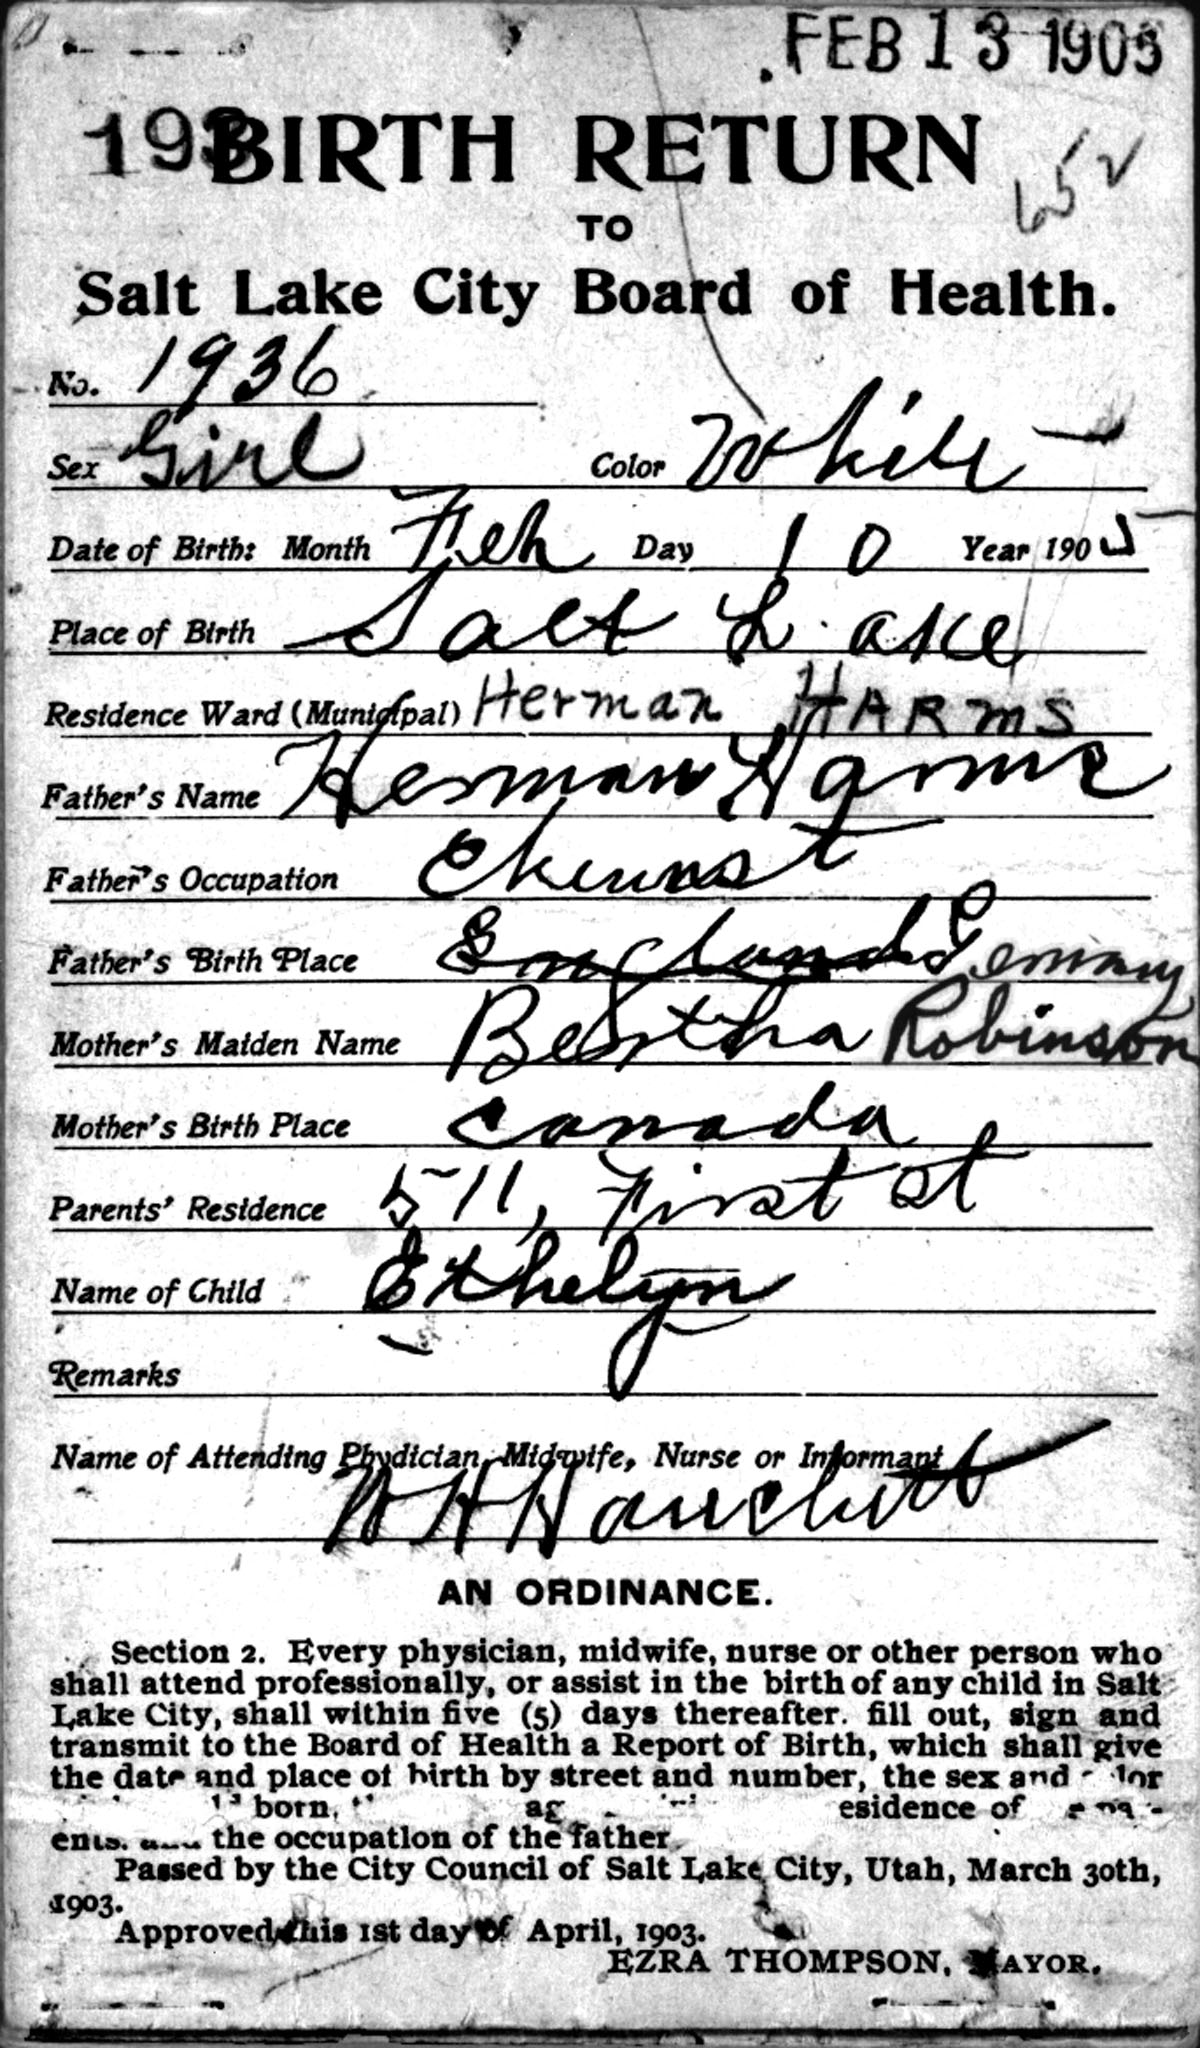 FEB 13 1905
193
BIRTH RETURN
652
TO
Salt Lake City Board of Health.
No. 1936
Sex Girl Color White
Date of Birth: Month Feb Day 10 Year 1905
Place of Birth Salt Lake
Residence Ward (Municipal) Herman HARMS
Father's Name Herman Harms
Father's Occupation Chemist
Father's Birth Place England Germany
Mother's Maiden Name Bertha Robinson
Mother's Birth Place Canada
Parents' Residence 511, First st
Name of Child Ethelyn
Remarks
Name of Attending Phydician, Midwife, Nurse or Informant
W H Hanchett
AN ORDINANCE.
Section 2. Every physician, midwife, nurse or other person who
shall attend professionally, or assist in the birth of any child in Salt
Lake City, shall within five (5) days thereafter. fill out, sign and
transmit to the Board of Health a Report of Birth, which shall give
the date and place of birth by street and number, the sex and
born, esidence of
ents. the occupation of the father
Passed by the City Council of Salt Lake City, Utah, March 30th,
1903.
Approved this 1st day of April, 1903.
EZRA THOMPSON, MAYOR.